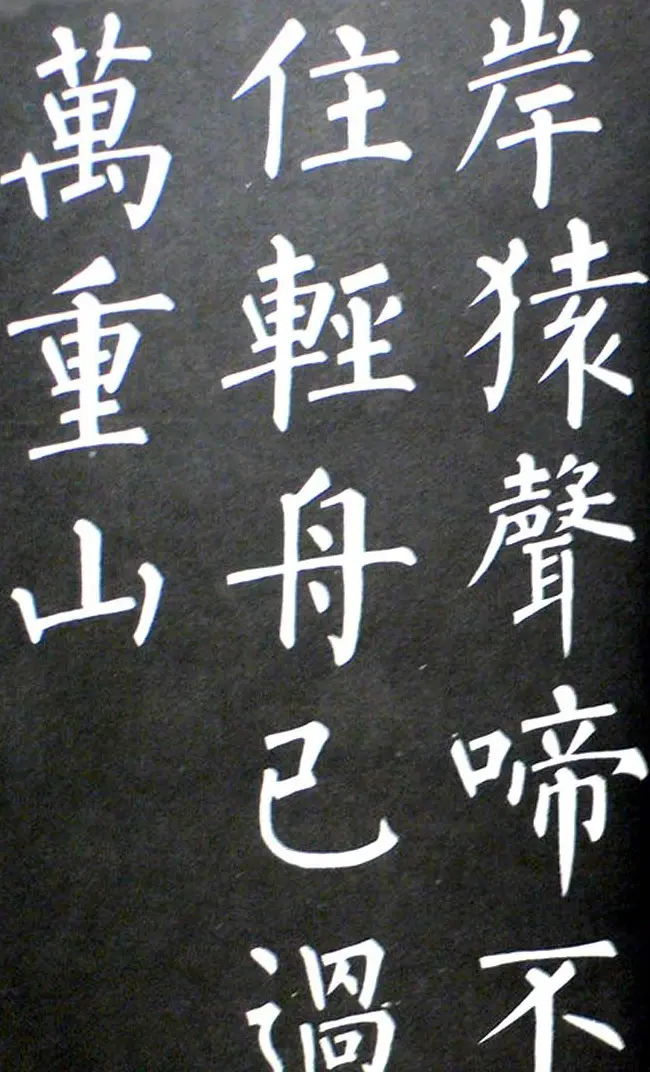 岸猿聲啼不
住輕舟已過
萬重山